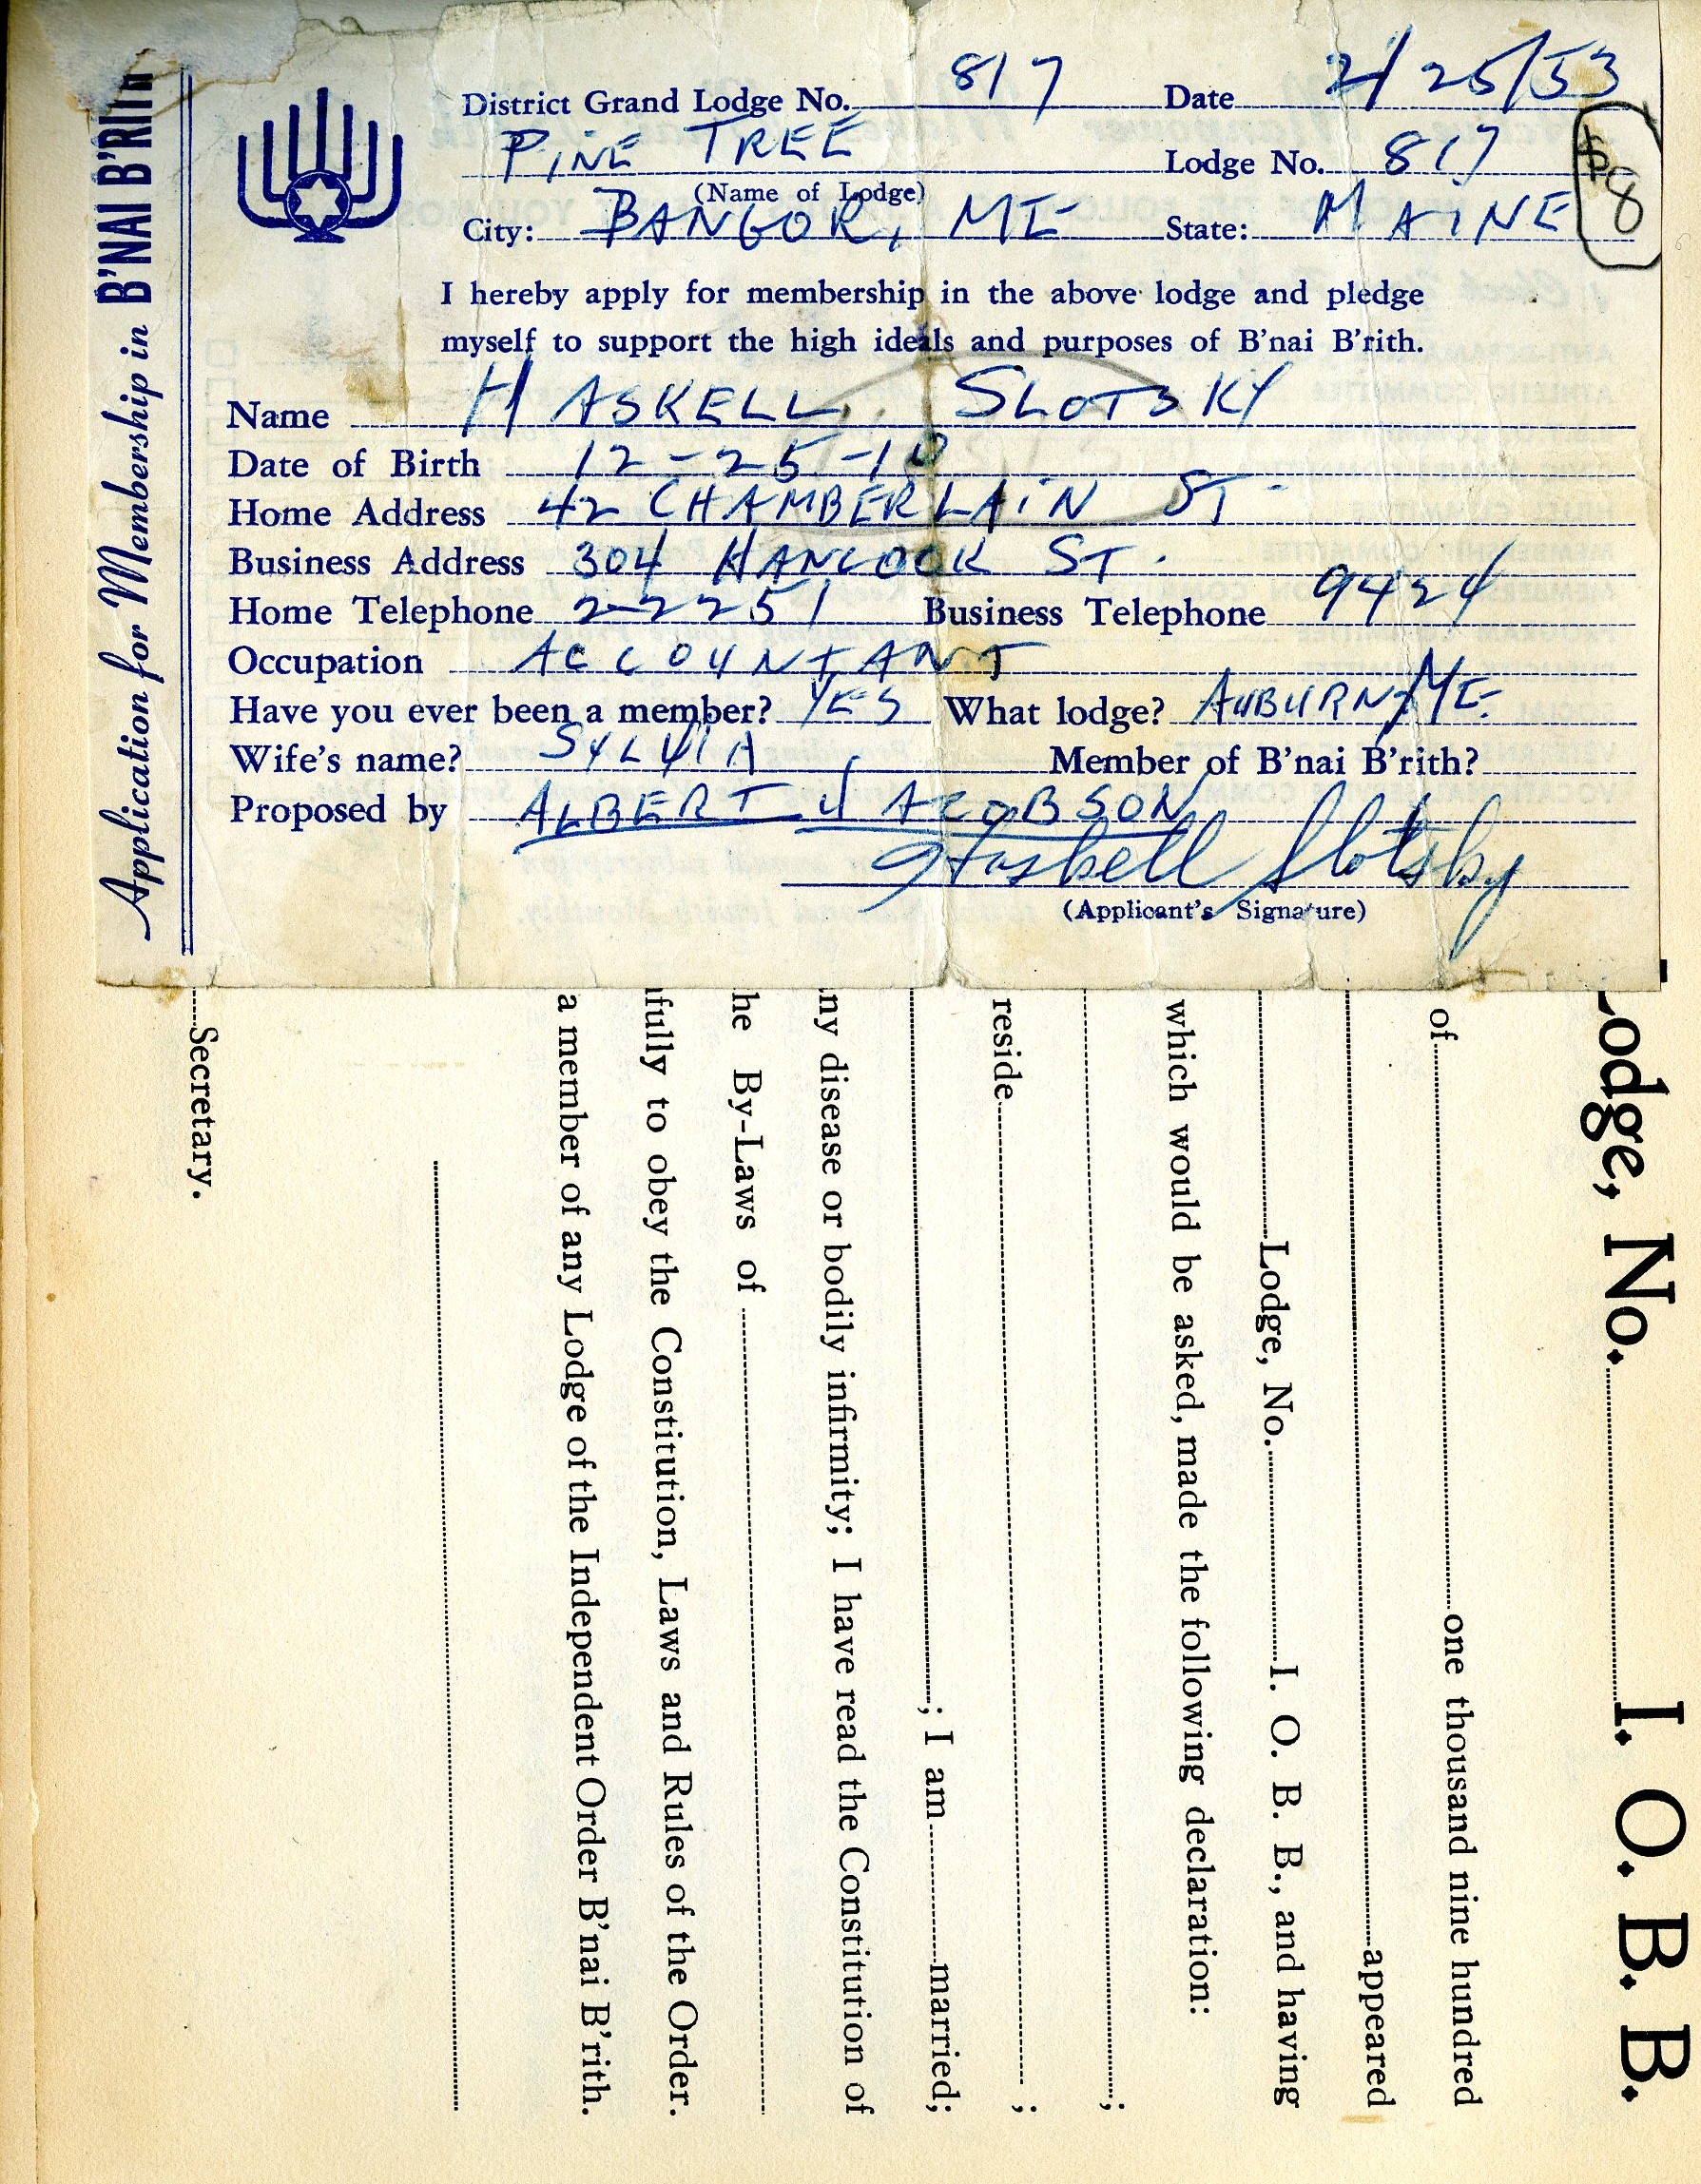 Application for Membership in B'NAI B'RITH
District Grand Lodge No. 817 Date 2/25/53
PINE TREE Lodge No. 817
$8
(Name of Lodge)
City: BANGOR, ME State: MAINE
I hereby apply for membership in the above lodge and pledge
myself to support the high ideals and purposes of B'nai B'rith.
Name HASKELL SLOTSKY
Date of Birth 12-25-10
Home Address 42 CHAMBERLAIN ST.
Business Address 304 HANCOCK ST.
Home Telephone 2-2251 Business Telephone 9424
Occupation ACCOUNTANT
Have you ever been a member? YES What lodge? AUBURN, ME.
Wife's name? SYLVIA Member of B'nai B'rith?
Proposed by ALBERT JACOBSON
Haskell Slotsky
(Applicant's Signature)
Lodge, No. I. O. B. B.
of one thousand nine hundred
appeared
Lodge, No. I. O. B. B., and having
which would be asked, made the following declaration:
;
reside ;
; I am married;
ny disease or bodily infirmity; I have read the Constitution of
he By-Laws of
fully to obey the Constitution, Laws and Rules of the Order.
a member of any Lodge of the Independent Order B'nai B'rith.
Secretary.